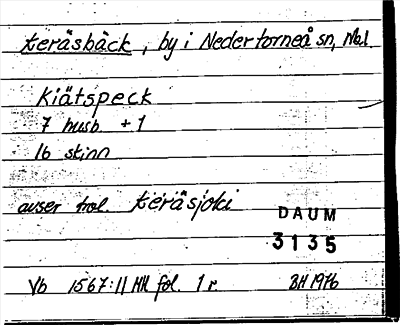 Keräsbäck, by i Nedertorneå sn, Nb.l
Kiätspeck
7 husb. + 1
16 skinn
avser trol. Keräsjoki
DAUM
3135
Vb 1567:11 MR fol. 1 r BH 1976